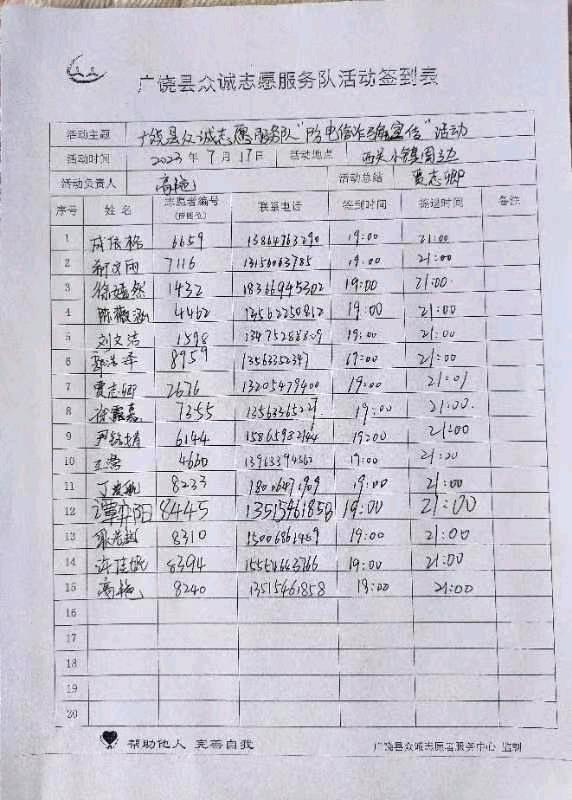 广饶县众诚志愿服务队活动签到表
活动主题 广饶县众诚志愿服务队"防电信诈骗宣传"活动
活动时间 2023年7月17日 活动地点 西关小镇周边
活动负责人 高艳 活动总结 贾志卿
序号 姓名 志愿者编号 联系电话 签到时间 签退时间 备注
1 6659 13864763290 19:00 21:00
2 7116 13156063785 19:00 21:00
3 徐嫣然 1432 18366945302 19:00 21:00
4 陈薇涵 4462 13562250812 19:00 21:00
5 刘文洁 1598 19:00 21:00
6 8959 13563352347 19:00 21:00
7 贾志卿 2676 13205479400 19:00 21:01
8 徐露嘉 7355 19:00 21:00
9 6144 15865982144 19:00 21:00
10 王蕾 4660 13963394562 19:00 21:00
11 8233 19:00 21:00
12 8445 13515461858 19:00 21:00
13 8310 15006861489 19:00 21:00
14 许佳妮 8394 15554663766 19:00 21:00
15 高艳 8240 13515461858 19:00 21:00
16
17
18
19
20
帮助他人 完善自我 广饶县众诚志愿者服务中心 监制